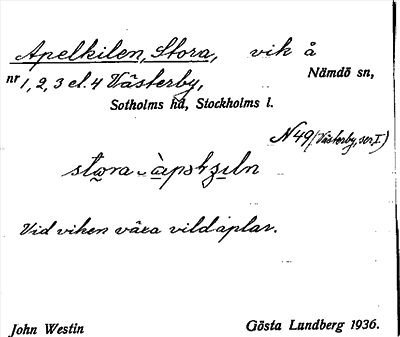 Apelkilen, Stora, vik å
nr 1, 2, 3 el. 4 Västerby, Nämdö sn,
Sotholms hd, Stockholms l.
N 49 (Västerby, ser. I)
stora - àpsk
Vid viken växa vildaplar.
John Westin Gösta Lundberg 1936.